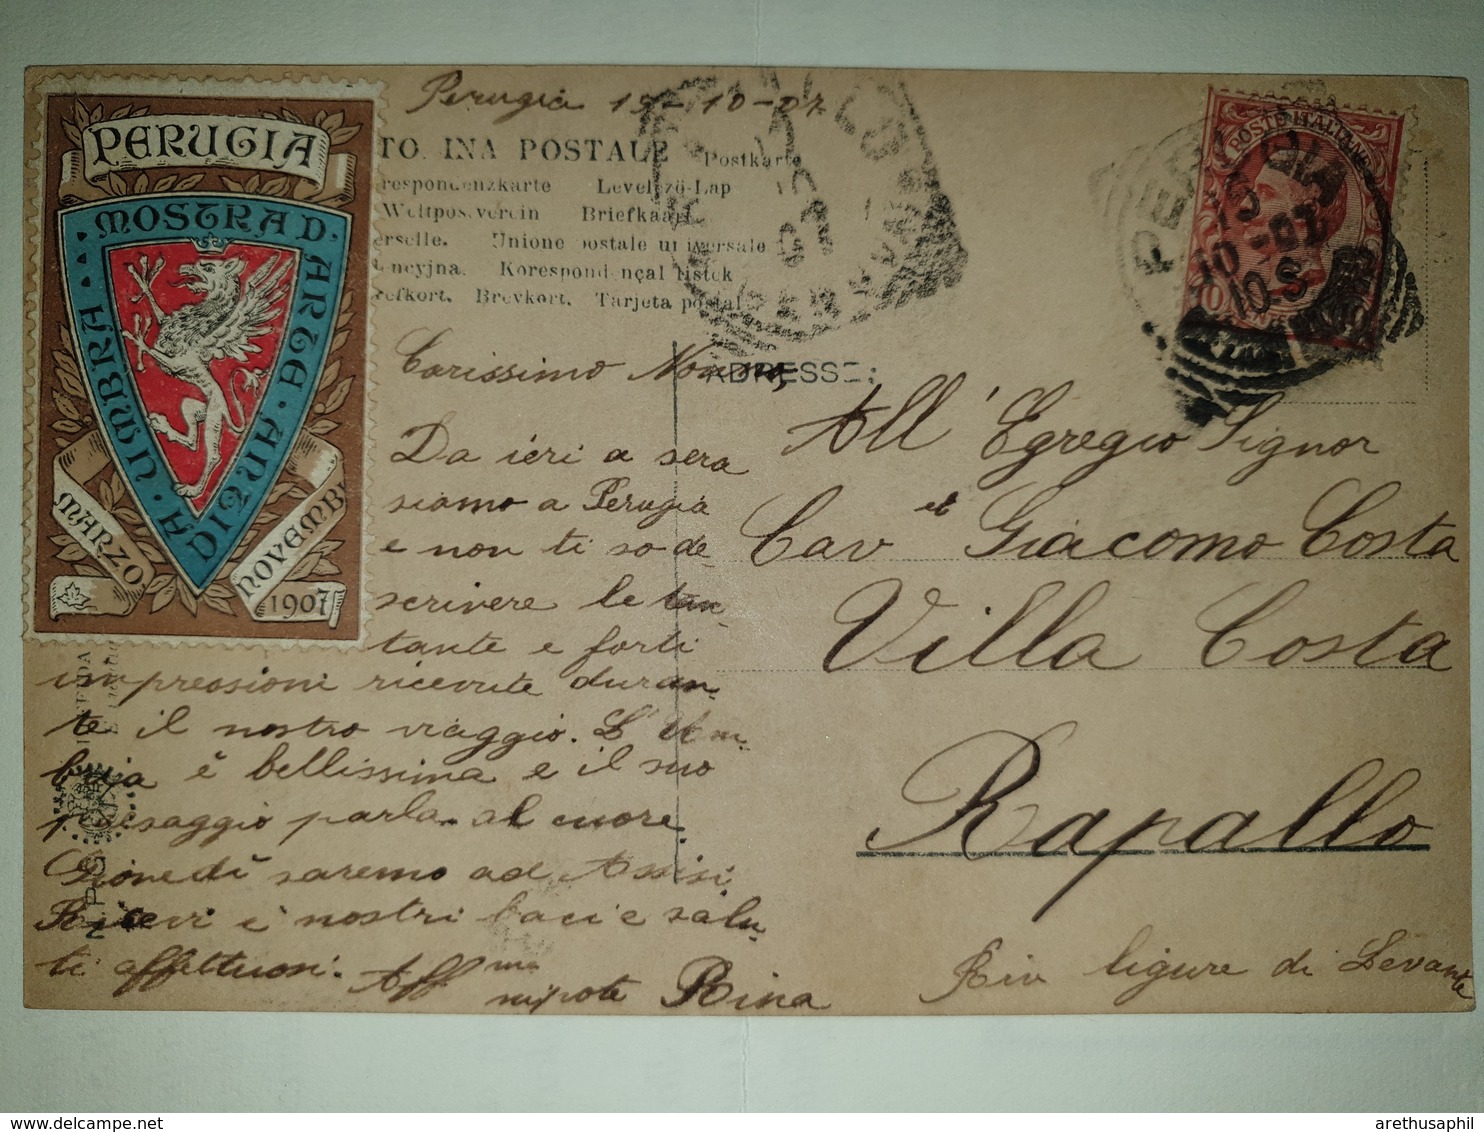 PERUGIA
MOSTRA D'ARTE ANTICA UMBRA
MARZO
NOVEMBRE
1907
Perugia 15-10-07
POSTALE Postkarte
respondenzkarte Levelező-Lap
Weltpostverein Briefkaart
erselle. Unione postale universale
Korespondençal listek
refkort. Brevkort. Tarjeta postal
ADRESSE:
POSTE ITALIANE
10
PERUGIA
15
10-07
10-S
Carissimo Nonno,
Da ieri a sera
siamo a Perugia
e non ti so de
scrivere le tan
tante e forti
impressioni ricevute duran
te il nostro viaggio. L'Um
bria è bellissima e il suo
paesaggio parla al cuore.
Giovedì saremo ad Assisi
Ricevi i nostri baci e salu
ti affettuosi. Aff.ma
nipote Rina
All'Egregio Signor
Cav Giacomo Costa
Villa Costa
Rapallo
Riv ligure di Levante
NPG
arethusaphil